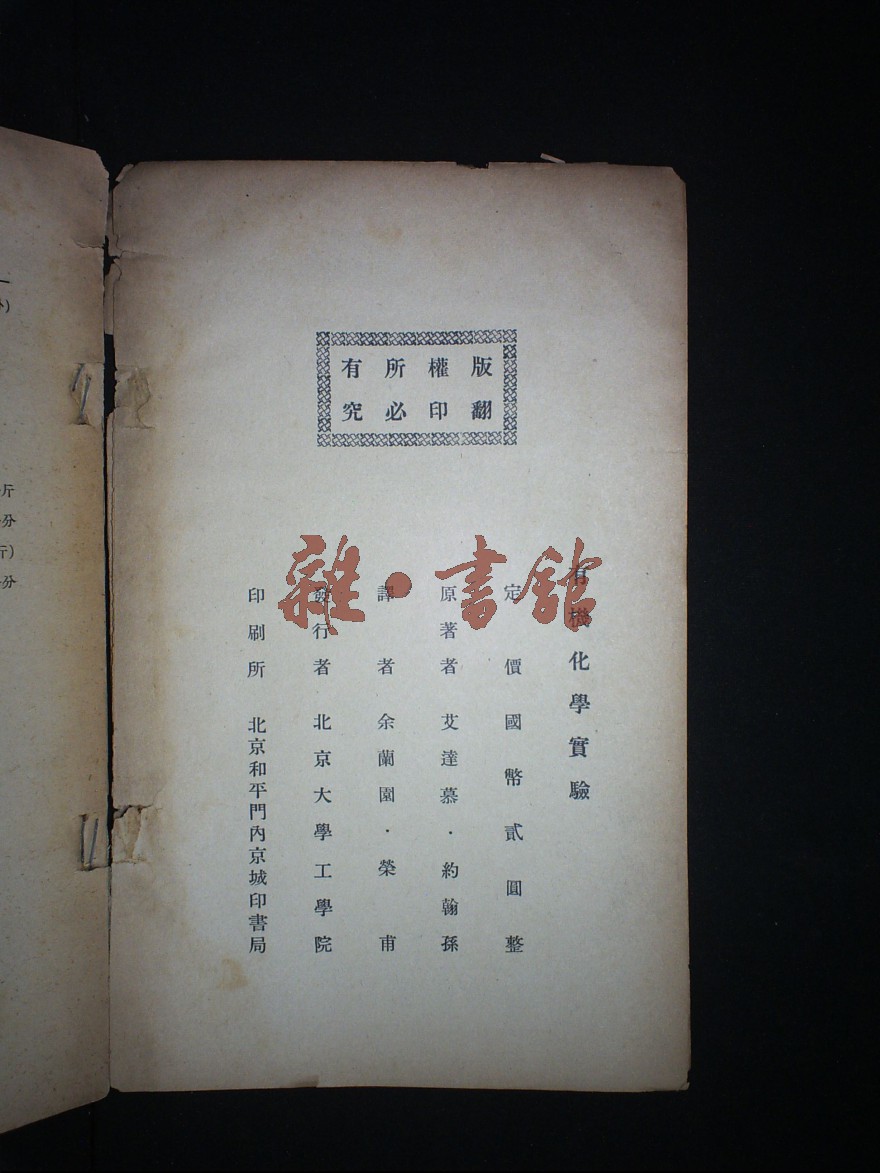 版權所有
翻印必究
有機化學實驗
定價國幣貳圓整
原著者 艾達慕·約翰孫
譯者 余蘭園·榮甫
發行者 北京大學工學院
印刷所 北京和平門內京城印書局
雜·書館
斤
分
分